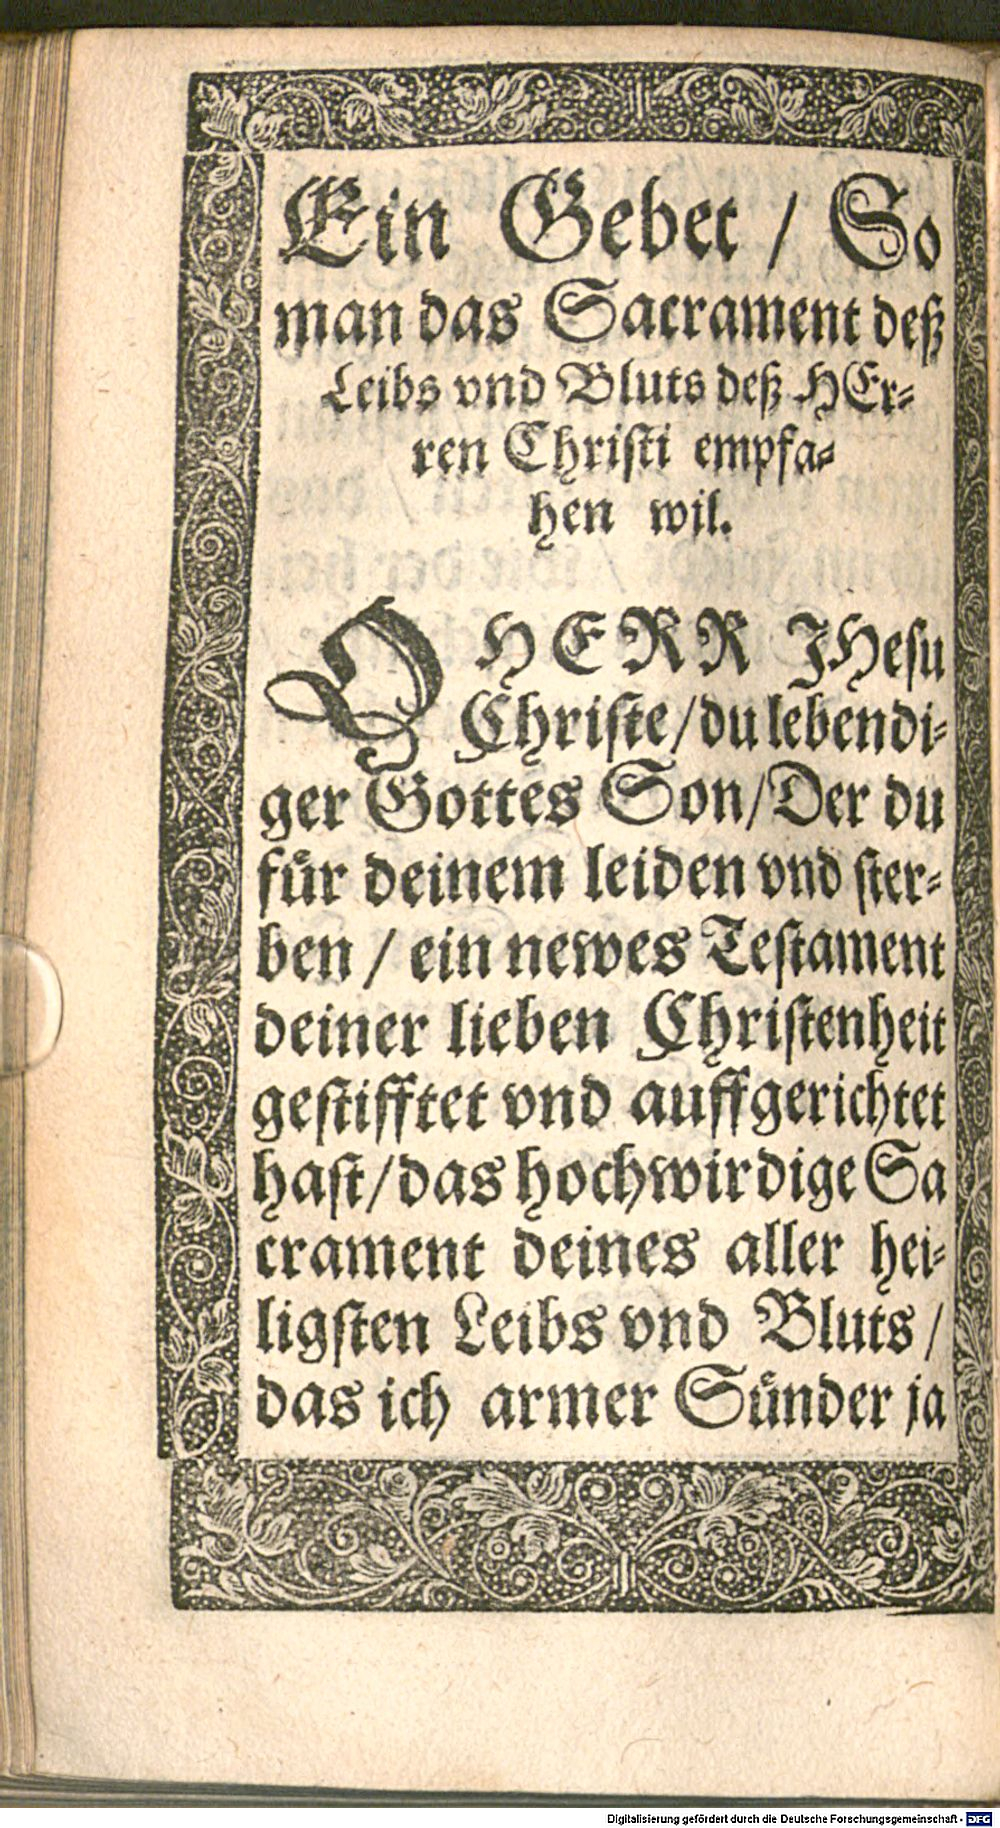 Ein Gebet / So
man das Sacrament deß
Leibs vnd Bluts deß HEr⸗
ren Christi empfa⸗
hen wil.
O HERR JHesu
Christe / du lebendi⸗
ger Gottes Son / Der du
für deinem leiden vnd ster⸗
ben / ein newes Testament
deiner lieben Christenheit
gestifftet vnd auffgerichtet
hast / das hochwirdige Sa
crament deines aller hei⸗
ligsten Leibs vnd Bluts /
das ich armer Sünder ja
Digitalisierung gefördert durch die Deutsche Forschungsgemeinschaft - DFG